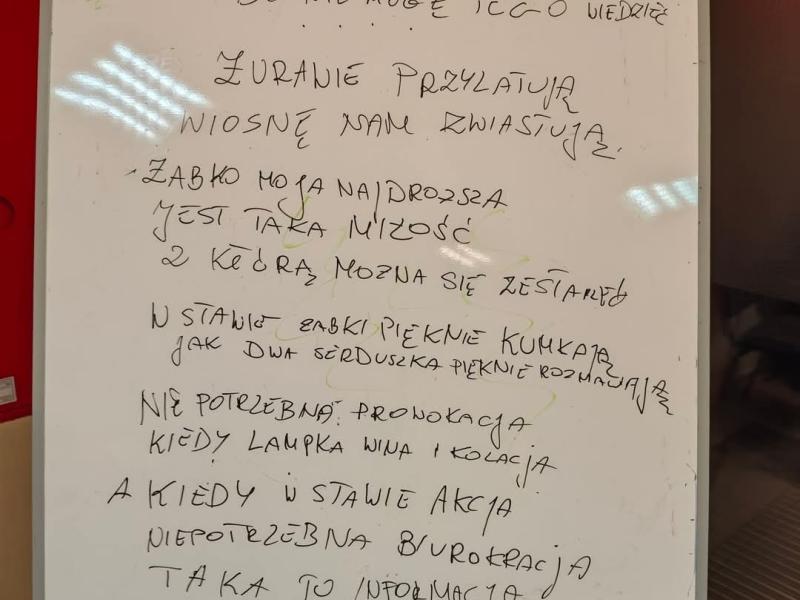 MOGĘ TEGO WIEDZIEĆ
ŻURANIE PRZYLATUJĄ
WIOSNĘ NAM ZWIASTUJĄ.
ŻABKO MOJA NAJDROZSZA
JEST TAKA MIŁOŚĆ
Z KTÓRĄ MOZNA SIĘ ZESTARZEĆ
W STAWIE ŻABKI PIĘKNIE KUMKAJĄ
JAK DWA SERDUSZKA PIĘKNIE ROZMAWIAJĄ
NIE POTRZEBNA PROWOKACJA
KIEDY LAMPKA WINA I KOLACJA
A KIEDY W STAWIE AKCJA
NIEPOTRZEBNA BIUROKRACJA
TAKA TO INFORMACJA